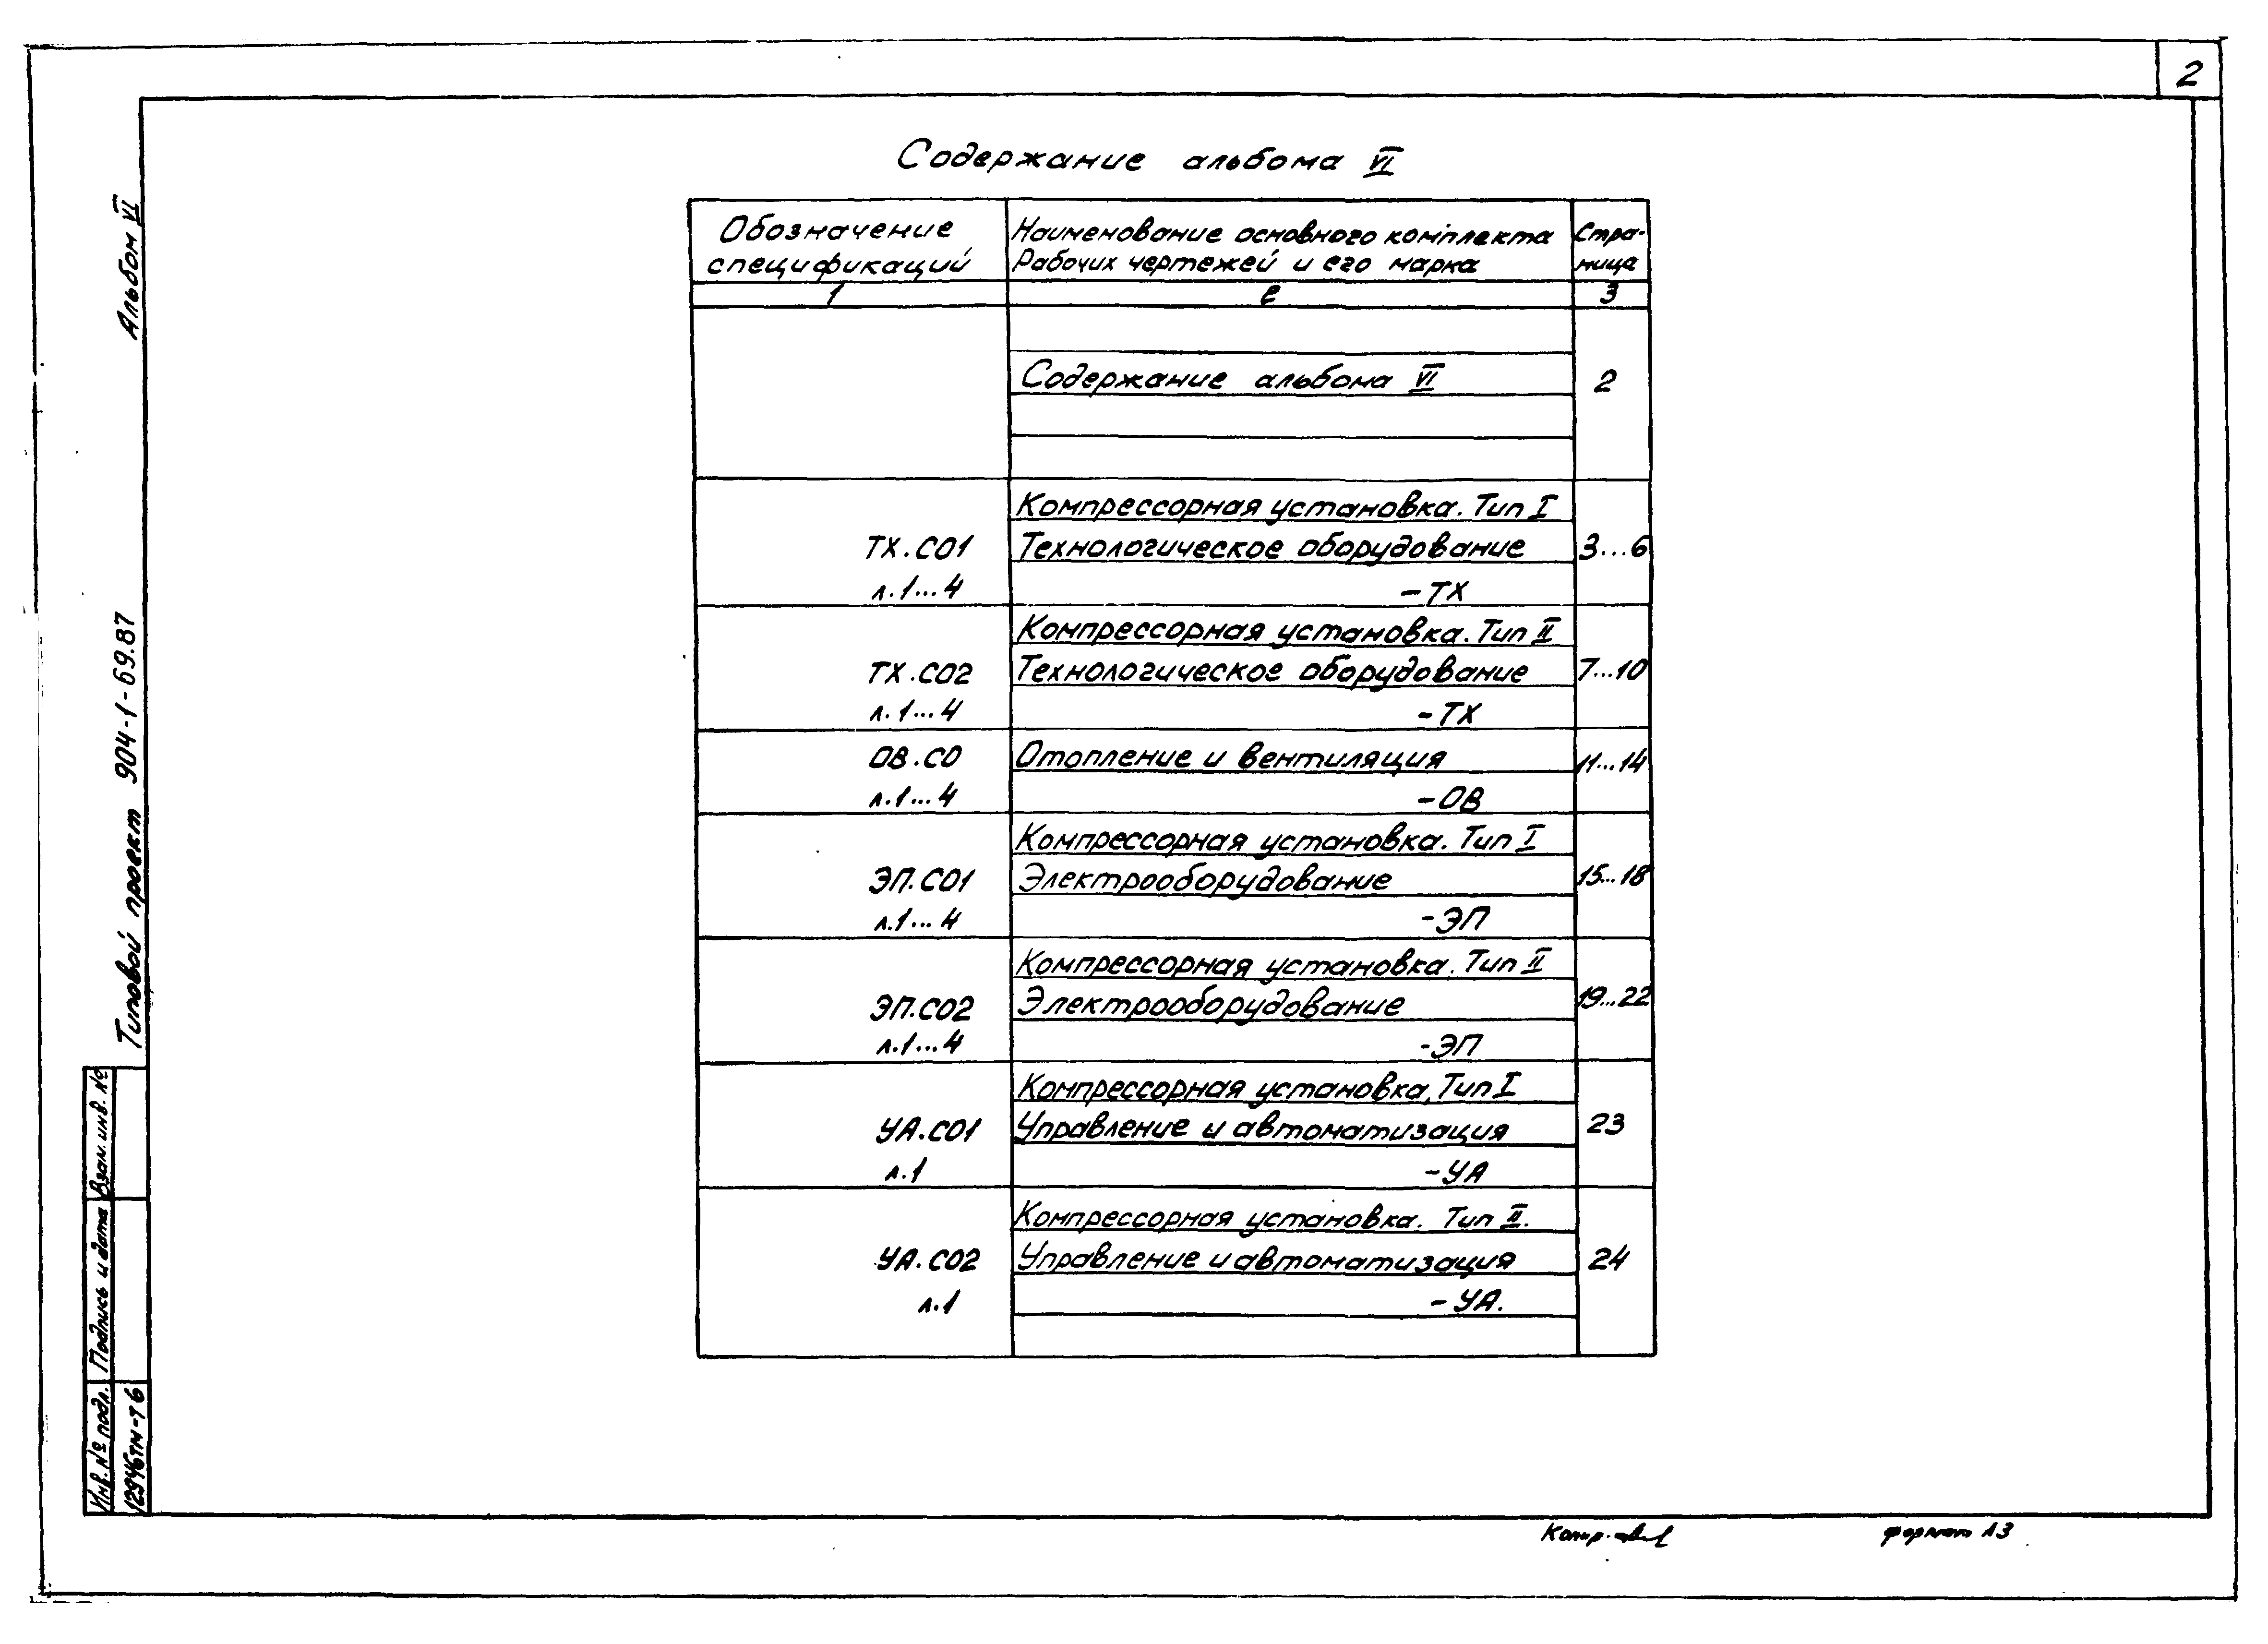 2
Содержание альбома VI
Обозначение спецификаций
Наименование основного комплекта Рабочих чертежей и его марка
Стра-ница
1 2 3
Содержание альбома VI 2
Компрессорная установка. Тип I
ТХ.СО1 Технологическое оборудование 3...6
л.1...4 -ТХ
Компрессорная установка. Тип II
ТХ.СО2 Технологическое оборудование 7...10
л.1...4 -ТХ
ОВ.СО Отопление и вентиляция 11...14
л.1...4 -ОВ
Компрессорная установка. Тип I
ЭП.СО1 Электрооборудование 15...18
л.1...4 -ЭП
Компрессорная установка. Тип II
ЭП.СО2 Электрооборудование 19...22
л.1...4 -ЭП
Компрессорная установка, Тип I
УА.СО1 Управление и автоматизация 23
л.1 -УА
Компрессорная установка. Тип II.
УА.СО2 Управление и автоматизация 24
л.1 -УА.
Типовой проект 904-1-69.87 Альбом VI
Инв.№ подл. Подпись и дата Взам.инв.№
12946тм-т6
Копир.
формат А3